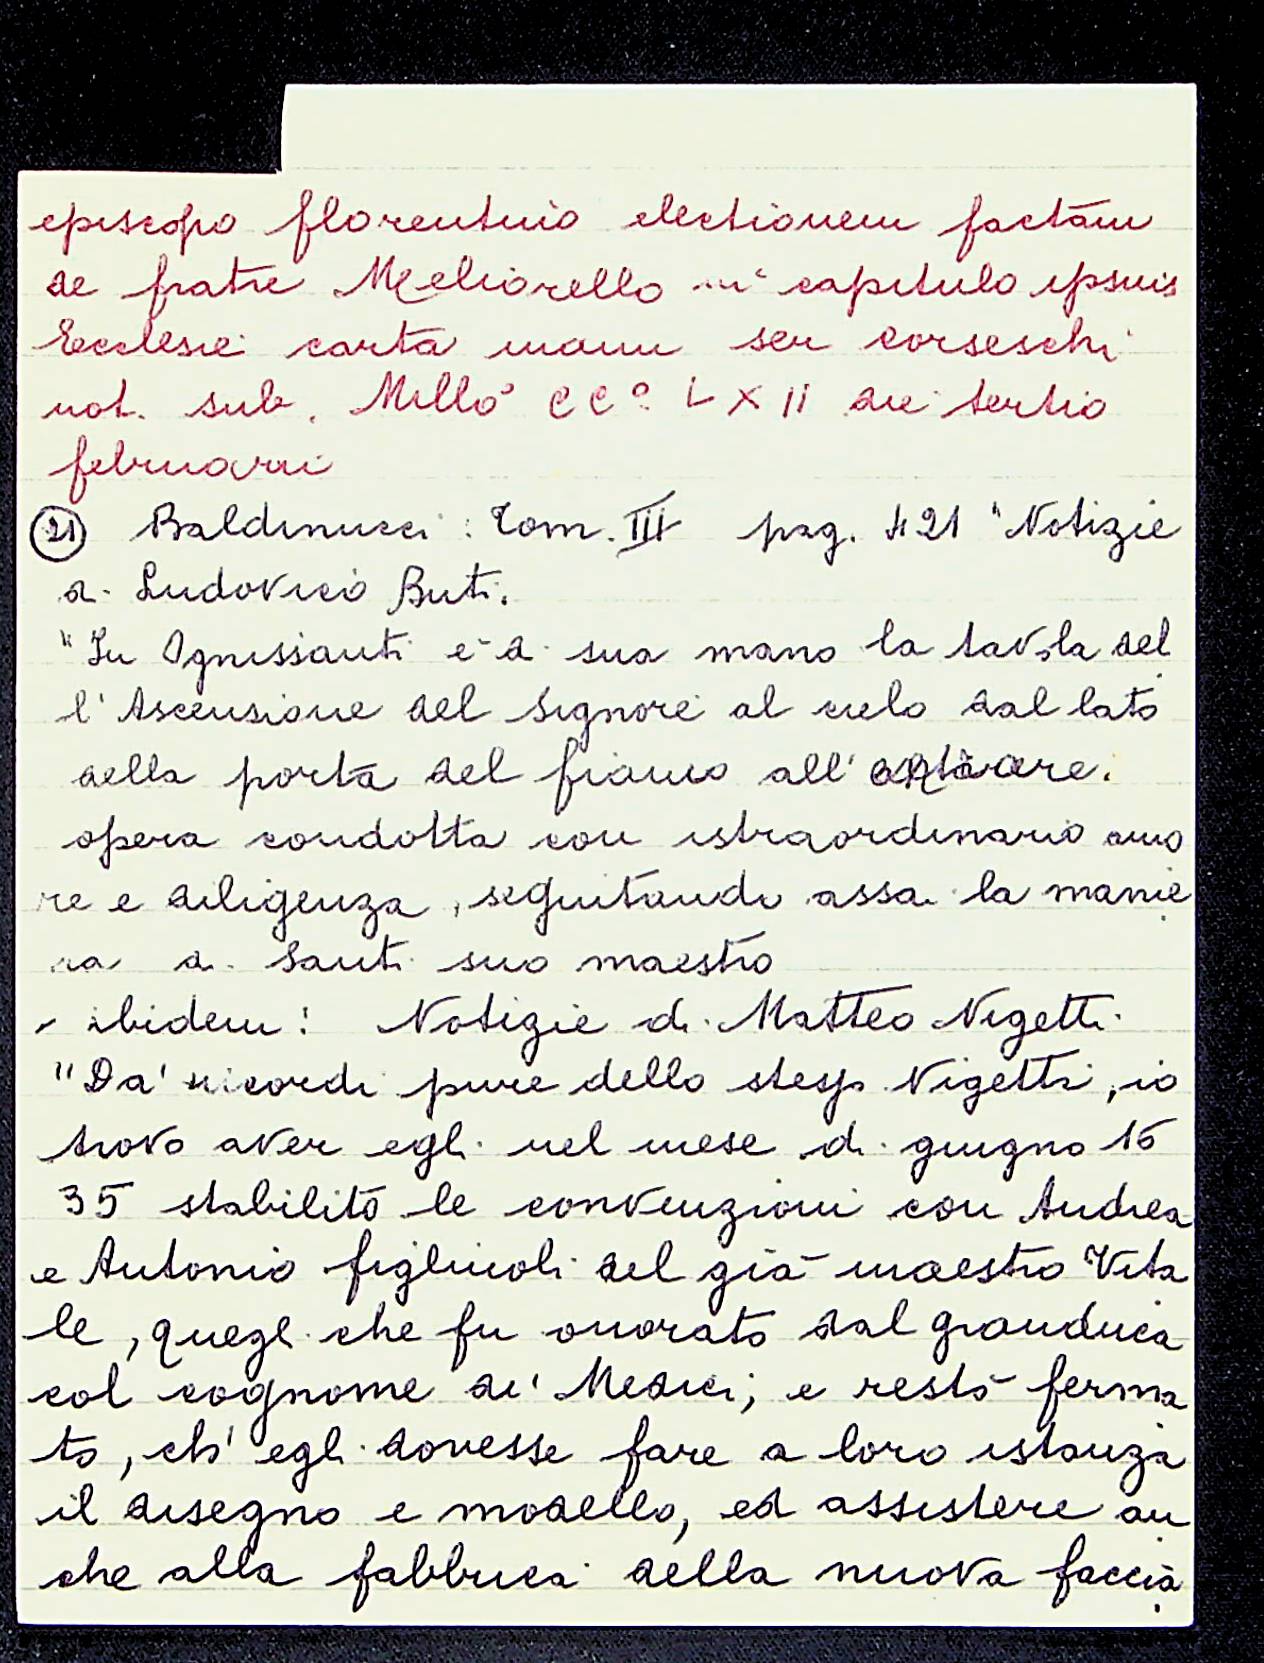 episcopo florentino electionem factam
de fratre Meliorello in capitulo ipsius
Ecclesie carta manu ser Corseschi
not. sub. Mill° CC° LXII die tertio
februarii
(21) Baldinucci: Tom. III pag. 421 "Notizie
di Ludovico Buti.
"In Ognissanti è di sua mano la tavola del
l'Ascensione del Signore al cielo dal lato
della porta del fianco all'
opera condotta con istraordinario amo
re e diligenza, seguitando assai la manie
ra di Santi suo maestro
ibidem: Notizie di Matteo Nigetti
"Da' ricordi pure dello stesso Nigetti, io
trovo aver egli nel mese di giugno 16
35 stabilito le convenzioni con Andrea
e Antonio figliuoli del già maestro Vita
le, quegli che fu onorato dal granduca
col cognome de' Medici; e restò ferma
to, ch'egli dovesse fare a loro istanza
il disegno e modello, ed assistere an
che alla fabbrica della nuova faccia